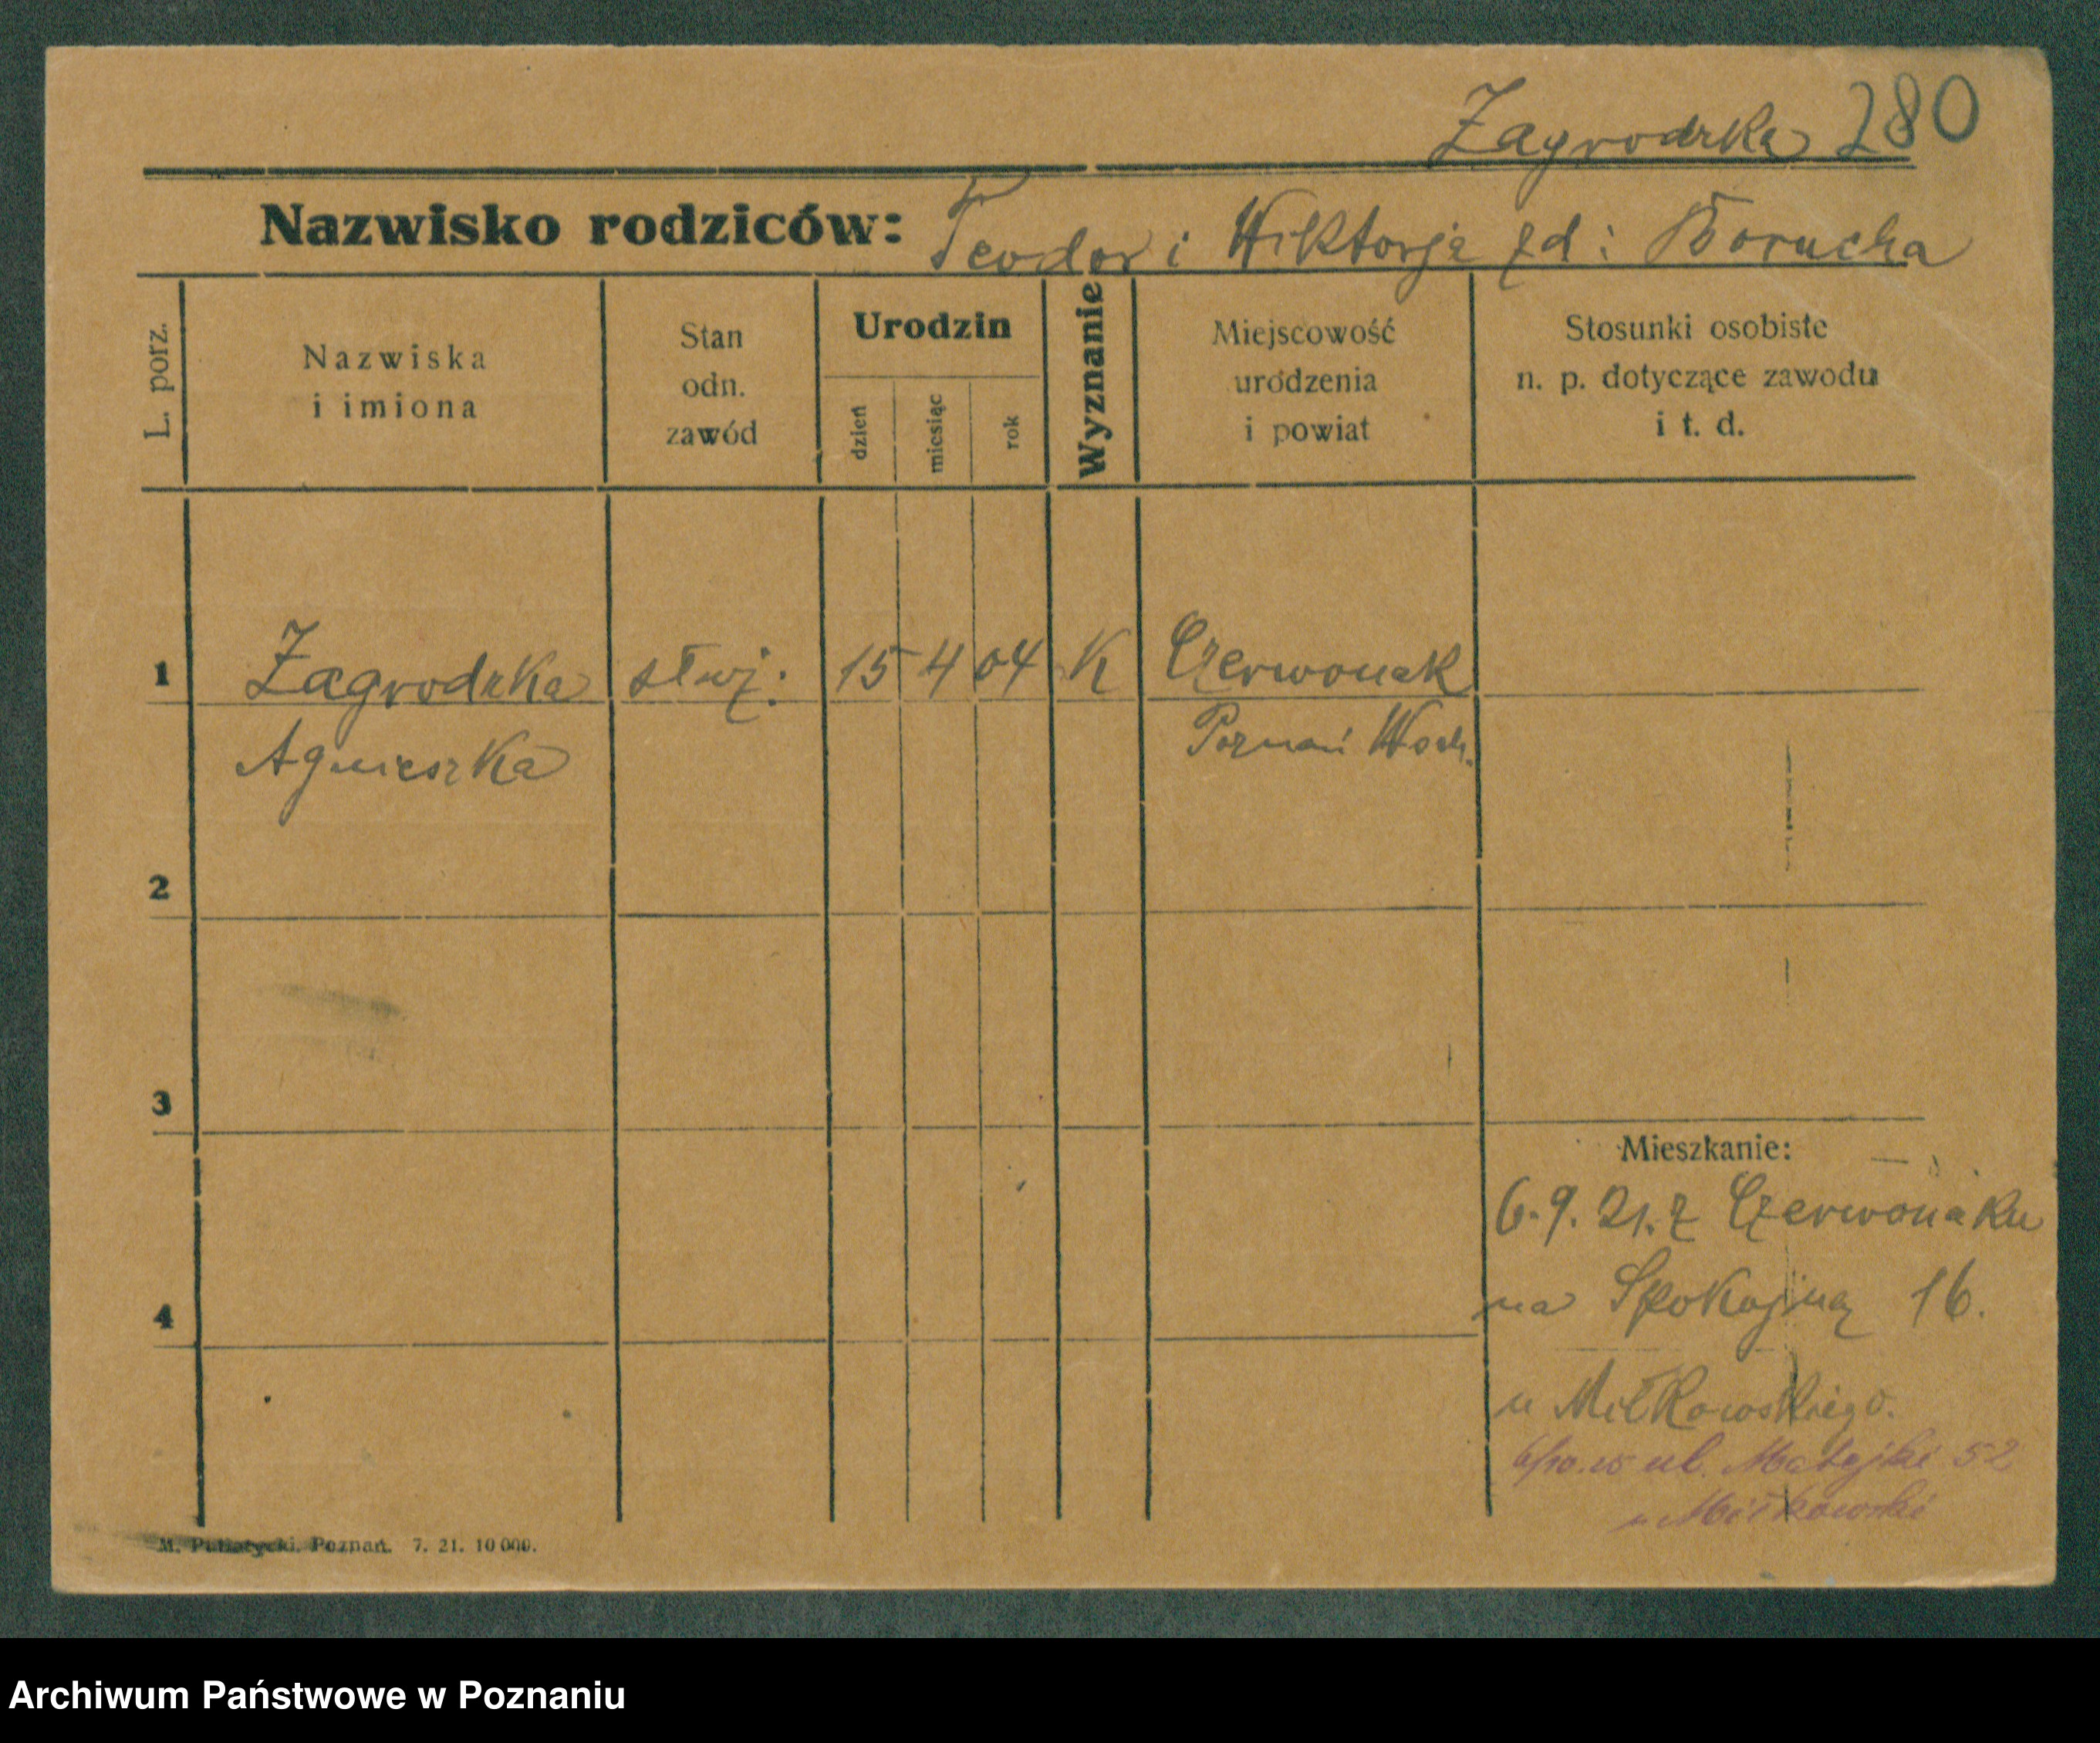 Zagrodzka 280
Nazwisko rodziców: Teodor i Wiktorja zd: Borucha
L. porz.
Nazwiska
i imiona
Stan
odn.
zawód
Urodzin
dzień
miesiąc
rok
Wyznanie
Miejscowość
urodzenia
i powiat
Stosunki osobiste
n. p. dotyczące zawodu
i t. d.
1 Zagrodzka służ. 15 4 04 K Czerwonak
Agnieszka Poznań Wsch.
2
3
Mieszkanie:
6. 9. 21. z Czerwonaku
4
na Spokojną 16.
u Miłkowskiego.
ul. Matejki 52
u Miłkowski
M. Poznań. 7. 21. 10 000.
Archiwum Państwowe w Poznaniu